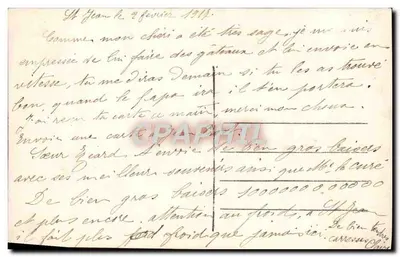 St Jean le 2 février 1917
Comme mon chéri a été très sage, je me suis
empressée de lui faire des gâteaux et lui envoie en
vitesse, tu me diras demain si tu les as trouvé
bon, quand le papa ira il t'en portera.
J'ai reçu ta carte ce matin, merci mon chou.
Envoie une carte
Sœur t'envoie de bien gros baisers
avec ses meilleurs souvenirs ainsi que Mr le curé
De bien gros baisers 1000000.00000
et plus encore, attention au froid, à St Jean
il fait plus froid que jamais ici.
De bien
caresses
PAPHIT